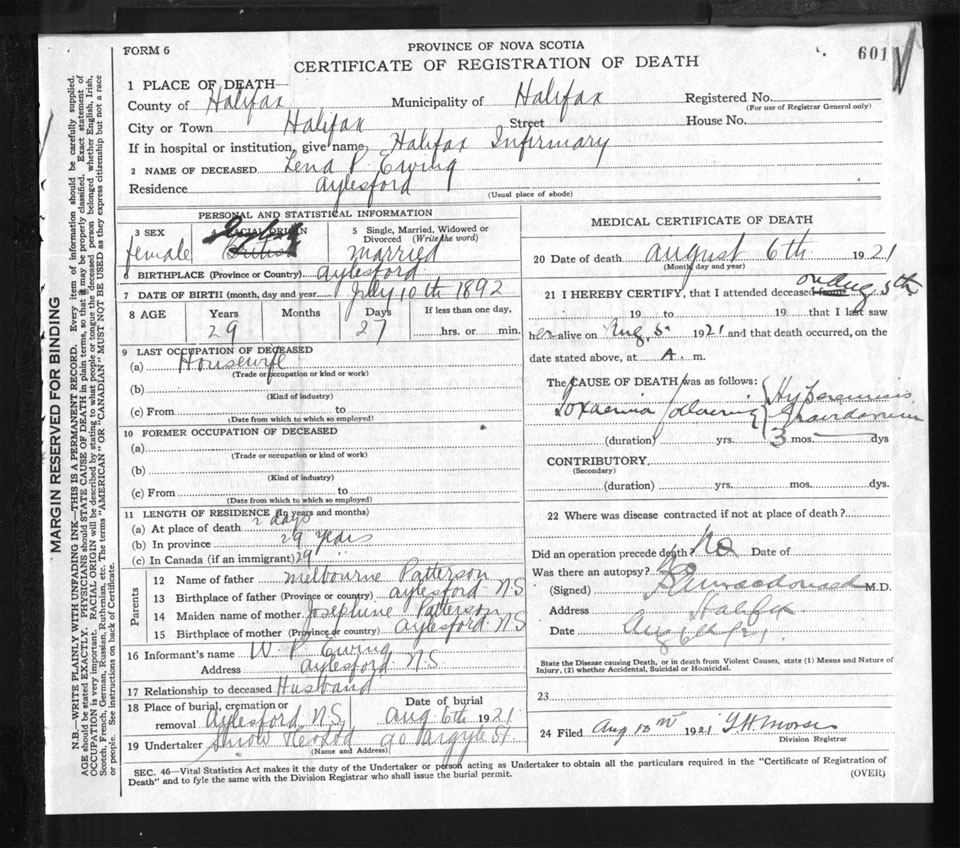 FORM 6
PROVINCE OF NOVA SCOTIA
601
CERTIFICATE OF REGISTRATION OF DEATH
1 PLACE OF DEATH—
County of Halifax Municipality of Halifax Registered No.
(For use of Registrar General only)
City or Town Halifax Street House No.
If in hospital or institution, give name Halifax Infirmary
2 NAME OF DECEASED Lena P. Ewing
Residence Aylesford
(Usual place of abode)
PERSONAL AND STATISTICAL INFORMATION
3 SEX 4 RACIAL ORIGIN 5 Single, Married, Widowed or Divorced (Write the word)
female English British Married
6 BIRTHPLACE (Province or Country) Aylesford
7 DATE OF BIRTH (month, day and year) July 10th 1892
8 AGE Years Months Days If less than one day,
29 27 hrs. or min.
9 LAST OCCUPATION OF DECEASED
(a) Housewife
(Trade or occupation or kind or work)
(b)
(Kind of industry)
(c) From to
(Date from which to which so employed)
10 FORMER OCCUPATION OF DECEASED
(a)
(Trade or occupation or kind of work)
(b)
(Kind of industry)
(c) From to
(Date from which to which so employed)
11 LENGTH OF RESIDENCE (In years and months)
(a) At place of death 2 days
(b) In province 29 years
(c) In Canada (if an immigrant) 29 "
Parents
12 Name of father Melbourne Patterson
13 Birthplace of father (Province or country) Aylesford NS
14 Maiden name of mother Josephine Patterson
15 Birthplace of mother (Province or country) Aylesford NS
16 Informant's name W. P. Ewing
Address Aylesford N.S
17 Relationship to deceased Husband
18 Place of burial, cremation or removal Aylesford N.S, Date of burial Aug 6th 1921
19 Undertaker Snow 90 Argyle St
(Name and Address)
MEDICAL CERTIFICATE OF DEATH
20 Date of death August 6th 1921
(Month, day and year)
21 I HEREBY CERTIFY, that I attended deceased from on Aug 5th
19 to 19 that I last saw
her alive on Aug, 5. 1921 and that death occurred, on the
date stated above, at A. m.
The CAUSE OF DEATH was as follows:
Toxaemia following Hyperemesis Gravidarum
(duration) yrs. 3 mos. dys
CONTRIBUTORY,
(Secondary)
(duration) yrs. mos. dys.
22 Where was disease contracted if not at place of death?
Did an operation precede death? No Date of
Was there an autopsy? No
(Signed) Macdonald M.D.
Address Halifax
Date Aug
State the Disease causing Death, or in death from Violent Causes, state (1) Means and Nature of Injury, (2) whether Accidental, Suicidal or Homicidal.
23
24 Filed Aug 10th 1921 Morse
Division Registrar
SEC. 46—Vital Statistics Act makes it the duty of the Undertaker or person acting as Undertaker to obtain all the particulars required in the "Certificate of Registration of
Death" and to fyle the same with the Division Registrar who shall issue the burial permit.
(OVER)
MARGIN RESERVED FOR BINDING
N.B.—WRITE PLAINLY WITH UNFADING INK—THIS IS A PERMANENT RECORD. Every item of information should be carefully supplied.
AGE should be stated EXACTLY. PHYSICIANS should STATE CAUSE OF DEATH in plain terms, so that it may be properly classified. Exact statement of
OCCUPATION is very important. RACIAL ORIGIN will be described by stating to what people or tongue the deceased person belonged whether English, Irish,
Scotch, French, German, Russian, Ruthenian, etc. The terms "AMERICAN" OR "CANADIAN" MUST NOT BE USED as they express citizenship but not a race
or people. See instructions on back of Certificate.